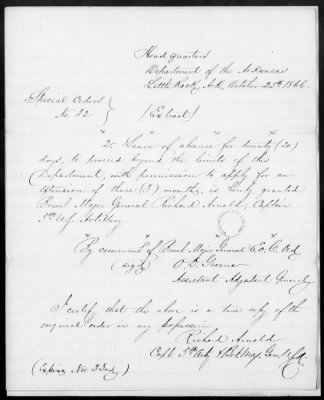 Head quarters
Department of the Arkansas
Little Rock, Ark, October 25th 1866.
Special Orders
No. 32
(Extract)
"2. Leave of absence for twenty (20)
days, to proceed beyond the limits of this
Department, with permission to apply for an
extension of three (3) months, is hereby granted
Brevet Major General Richard Arnold, Captain
5th U.S. Artillery
" " " " "
By command of Brevt Major General E.O.C. Ord
(sigd) O. D. Greene
Assistant Adjutant General
I certify that the above is a true copy of the
original order in my possession.
Richard Arnold
Capt 5th Arty & Bvt Maj. Genl U.S.A.
(Expires Nov 22nd)